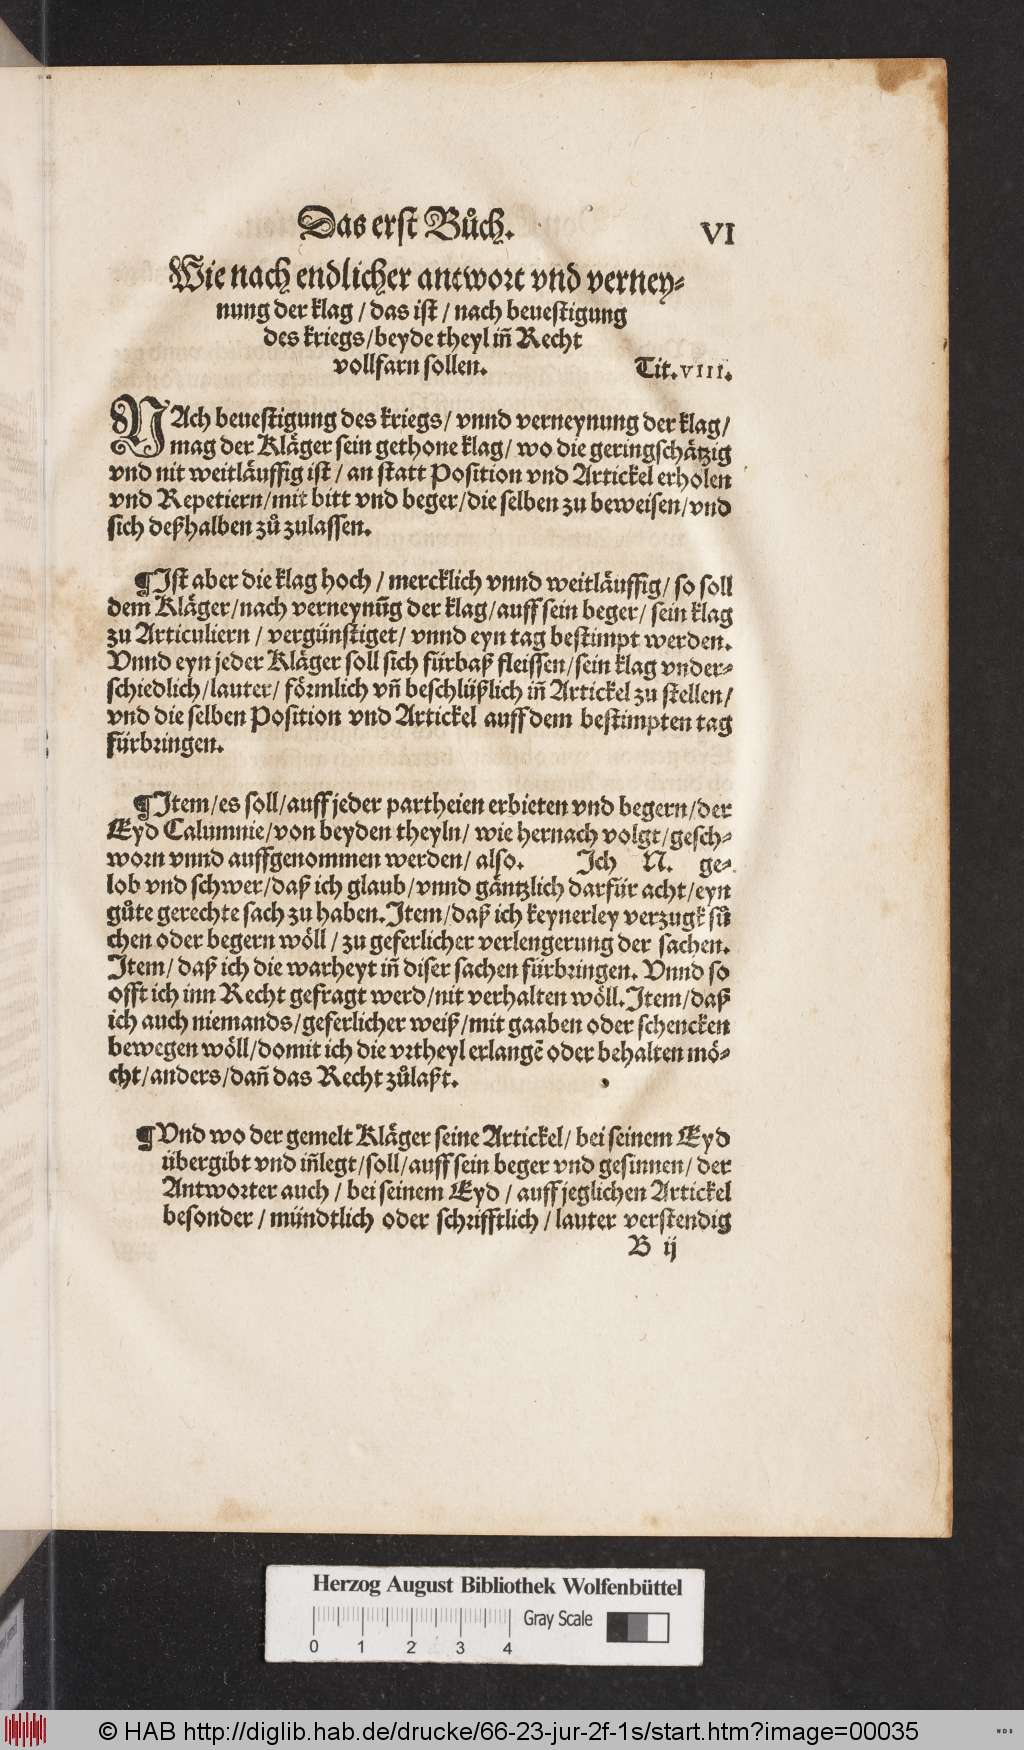 Das erst Bůch.
VI
Wie nach endlicher antwort vnd verney-
nung der klag / das ist / nach beuestigung
des kriegs / beyde theyl iñ Recht
vollfarn sollen.
Tit. VIII.
NAch beuestigung des kriegs / vnnd verneynung der klag /
mag der Kläger sein gethone klag / wo die geringschätzig
vnd nit weitläuffig ist / an statt Position vnd Artickel erholen
vnd Repetiern / mit bitt vnd beger / die selben zu beweisen / vnd
sich deßhalben zů zulassen.
¶ Ist aber die klag hoch / mercklich vnnd weitläuffig / so soll
dem Kläger / nach verneynūg der klag / auff sein beger / sein klag
zu Articuliern / vergünstiget / vnnd eyn tag bestimpt werden.
Vnnd eyn jeder Kläger soll sich fürbaß fleissen / sein klag vnder-
schiedlich / lauter / förmlich vñ beschlüßlich iñ Artickel zu stellen /
vnd die selben Position vnd Artickel auff dem bestimpten tag
fürbringen.
¶ Item / es soll / auff jeder partheien erbieten vnd begern / der
Eyd Calumnie / von beyden theyln / wie hernach volgt / gesch-
worn vnnd auffgenommen werden / also. Ich N. ge-
lob vnd schwer / daß ich glaub / vnnd gäntzlich darfür acht / eyn
gůte gerechte sach zu haben. Item / daß ich keynerley verzugk sů
chen oder begern wöll / zu geferlicher verlengerung der sachen.
Item / daß ich die warheyt iñ diser sachen fürbringen. Vnnd so
offt ich inn Recht gefragt werd / nit verhalten wöll. Item / daß
ich auch niemands / geferlicher weiß / mit gaaben oder schencken
bewegen wöll / domit ich die vrtheyl erlangē oder behalten mö-
cht / anders / dañ das Recht zůlaßt.
¶ Vnd wo der gemelt Kläger seine Artickel / bei seinem Eyd
übergibt vnd iñlegt / soll / auff sein beger vnd gesinnen / der
Antworter auch / bei seinem Eyd / auff jeglichen Artickel
besonder / mündtlich oder schrifftlich / lauter verstendig
B ij
Herzog August Bibliothek Wolfenbüttel
Gray Scale
0 1 2 3 4
© HAB http://diglib.hab.de/drucke/66-23-jur-2f-1s/start.htm?image=00035